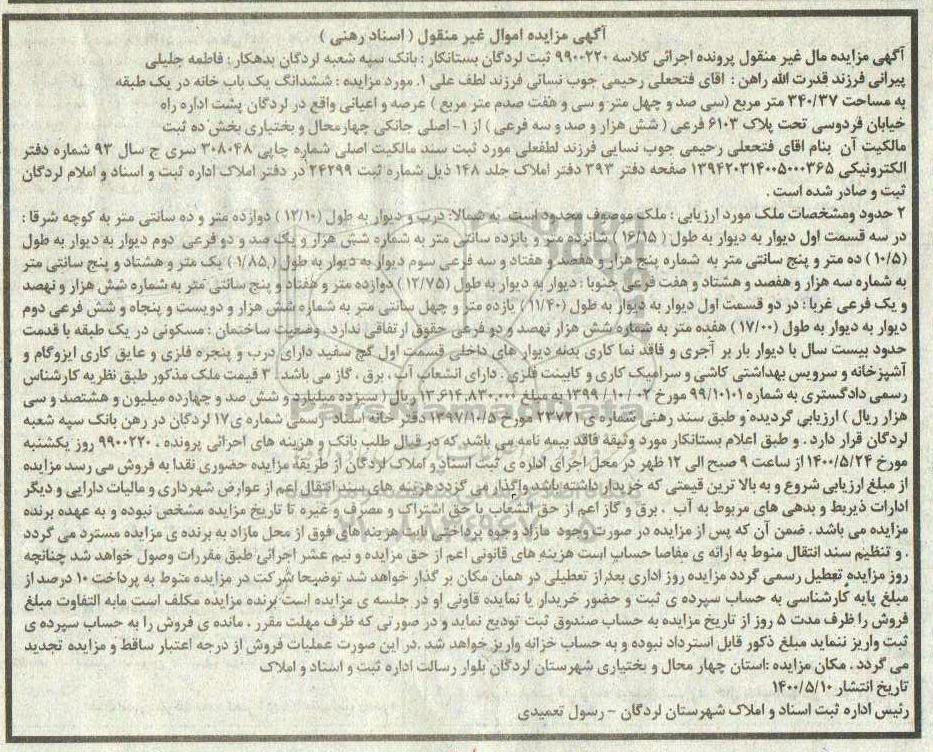 آگهی مزایده اموال غیر منقول ( اسناد رهنی )
آگهی مزایده مال غیر منقول پرونده اجرائی کلاسه ۹۹۰۰۲۲۰ ثبت لردگان بستانکار : بانک سپه شعبه لردگان بدهکار : فاطمه جلیلی
پیرانی فرزند قدرت الله راهن : اقای فتحعلی رحیمی جوب نسائی فرزند لطف علی ۱. مورد مزایده : ششدانگ یک باب خانه در یک طبقه
به مساحت ۳۴۰/۳۷ متر مربع (سی صد و چهل متر و سی و هفت صدم متر مربع ) عرصه و اعیانی واقع در لردگان پشت اداره راه
خیابان فردوسی تحت پلاک ۶۱۰۳ فرعی ( شش هزار و صد و سه فرعی ) از ۱- اصلی جانکی چهارمحال و بختیاری بخش ده ثبت
مالکیت آن بنام اقای فتحعلی رحیمی جوب نسایی فرزند لطفعلی مورد ثبت سند مالکیت اصلی شماره چاپی ۳۰۸۰۴۸ سری ج سال ۹۳ شماره دفتر
الکترونیکی ۱۳۹۴۲۰۳۱۴۰۰۵۰۰۰۳۶۵ صفحه دفتر ۳۹۳ دفتر املاک جلد ۱۴۸ ذیل شماره ثبت ۲۴۲۹۹ در دفتر املاک اداره ثبت و اسناد و املام لردگان
ثبت و صادر شده است .
۲ حدود ومشخصات ملک مورد ارزیابی : ملک موصوف محدود است به شمالا: درب و دیوار به طول (۱۲/۱۰) دوازده متر و ده سانتی متر به کوچه شرقا :
در سه قسمت اول دیوار به دیوار به طول ( ۱۶/۱۵) شانزده متر و پانزده سانتی متر به شماره شش هزار و یک صد و دو فرعی دوم دیوار به دیوار به طول
(۱۰/۵) ده متر و پنج سانتی متر به شماره پنج هزار و هفصد و هفتاد و سه فرعی سوم دیوار به دیوار به طول (۱/۸۵) یک متر و هشتاد و پنج سانتی متر
به شماره سه هزار و هفصد و هشتاد و هفت فرعی جنوبا : دیوار به دیوار به طول (۱۲/۷۵) دوازده متر و هفتاد و پنج سانتی متر به شماره شش هزار و نهصد
و یک فرعی غربا : در دو قسمت اول دیوار به دیوار به طول (۱۱/۴۰) یازده متر و چهل سانتی متر به شماره شش هزار و دویست و پنجاه و شش فرعی دوم
دیوار به دیوار به طول (۱۷/۰۰) هفده متر به شماره شش هزار نهصد و دو فرعی حقوق ارتفاقی ندارد . وضعیت ساختمان : مسکونی در یک طبقه با قدمت
حدود بیست سال با دیوار بار بر آجری و فاقد نما کاری بدنه دیوار های داخلی قسمت اول گچ سفید دارای درب و پنجره فلزی و عایق کاری ایزوگام و
آشپزخانه و سرویس بهداشتی کاشی و سرامیک کاری و کابینت فلزی . دارای انشعاب آب ، برق ، گاز می باشد . ۳ قیمت ملک مذکور طبق نظریه کارشناس
رسمی دادگستری به شماره ۹۹/۱۰۱۰۱ مورخ ۰۲ / ۱۰ / ۱۳۹۹ به مبلغ ۱۳,۶۱۴,۸۳۰,۰۰۰ ریال ( سیزده میلیارد و شش صد و چهارده میلیون و هشتصد و سی
هزار ریال ) ارزیابی گردیده و طبق سند رهنی شماره ی ۲۳۷۲۱ مورخ ۱۳۹۷/۱۰/۵ دفتر خانه اسناد رسمی شماره ی۱۷ لردگان در رهن بانک سپه شعبه
لردگان قرار دارد . و طبق اعلام بستانکار مورد وثیقه فاقد بیمه نامه می باشد که در قبال طلب بانک و هزینه های اجرائی پرونده ، ۹۹۰۰۲۲۰ روز یکشنبه
مورخ ۱۴۰۰/۵/۲۴ از ساعت ۹ صبح الی ۱۲ ظهر در محل اجرای اداره ی ثبت اسناد و املاک لردگان از طریقه مزایده حضوری نقدا به فروش می رسد مزایده
از مبلغ ارزیابی شروع و به بالا ترین قیمتی که خریدار داشته باشد واگذار می گردد هزینه های سند انتقال اعم از عوارض شهرداری و مالیات دارایی و دیگر
ادارات ذیربط و بدهی های مربوط به آب ، برق و گاز اعم از حق انشعاب یا حق اشتراک و مصرف و غیره تا تاریخ مزایده مشخص نبوده و به عهده برنده
مزایده می باشد . ضمن آن که پس از مزایده در صورت وجود مازاد وجوه پرداختی بابت هزینه های فوق از محل مازاد به برنده ی مزایده مسترد می گردد
. و تنظیم سند انتقال منوط به ارائه ی مفاصا حساب است هزینه های قانونی اعم از حق مزایده و نیم عشر اجرائی طبق مقررات وصول خواهد شد چنانچه
روز مزایده تعطیل رسمی گردد مزایده روز اداری بعد از تعطیلی در همان مکان بر گذار خواهد شد توضیحا شرکت در مزایده منوط به پرداخت ۱۰ درصد از
مبلغ پایه کارشناسی به حساب سپرده ی ثبت و حضور خریدار یا نماینده قانونی او در جلسه ی مزایده است برنده مزایده مکلف است مابه التفاوت مبلغ
فروش را ظرف مدت ۵ روز از تاریخ مزایده به حساب صندوق ثبت تودیع نماید و در صورتی که ظرف مهلت مقرر ، مانده ی فروش را به حساب سپرده ی
ثبت واریز ننماید مبلغ ذکور قابل استرداد نبوده و به حساب خزانه واریز خواهد شد .در این صورت عملیات فروش از درجه اعتبار ساقط و مزایده تجدید
می گردد . مکان مزایده :استان چهار محال و بختیاری شهرستان لردگان بلوار رسالت اداره ثبت و اسناد و املاک
تاریخ انتشار ۱۴۰۰/۵/۱۰
رئیس اداره ثبت اسناد و املاک شهرستان لردگان - رسول تعمیدی